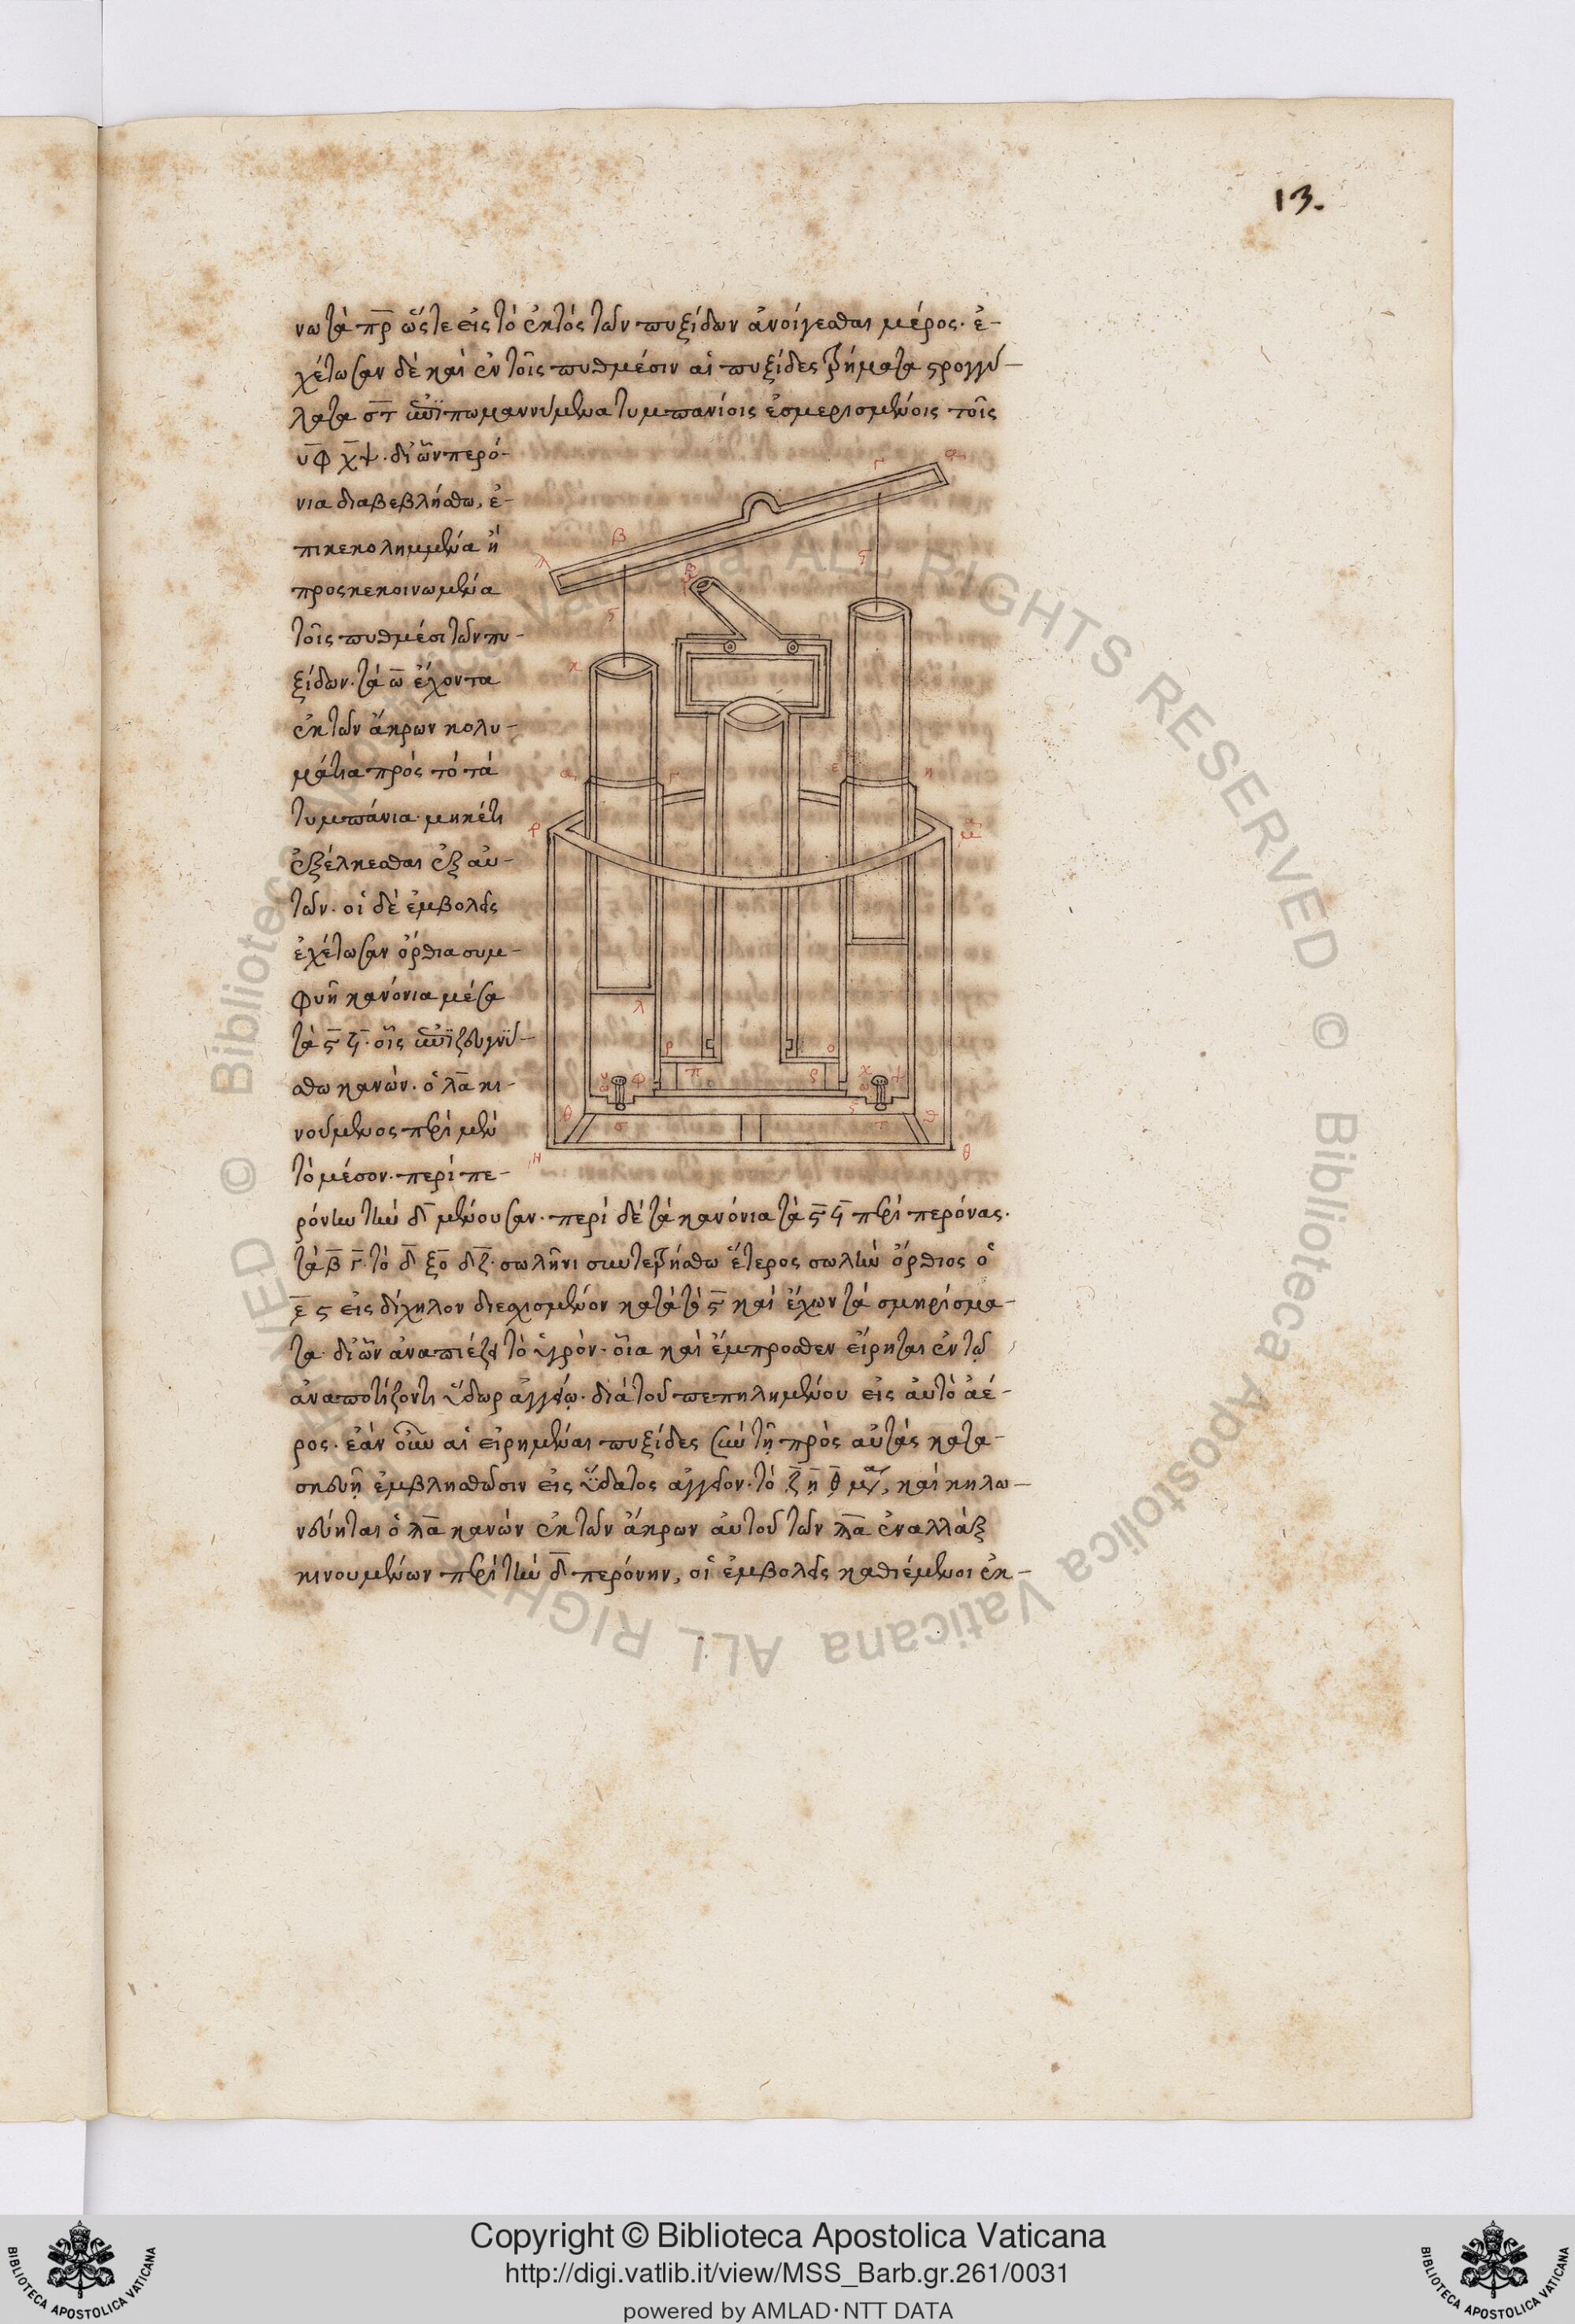 13.
νω τὰ π̅ρ̅ ὥςτε εἰς τὸ ἐκτὸς τῶν πυξίδων ἀνοίγεσθαι μέρος· ἐ-
χέτωσαν δὲ καὶ ἐν τοῖς πυθμέσιν αἱ πυξίδες τρήματα στρογγύ-
λα τὰ σ̅τ̅ ἐπιπωμαννύμενα τυμπανίοις ἐσμερισμένοις τοῖς
υ̅φ̅ χ̅ψ̅· δι' ὧν περό-
νια διαβεβλήσθω, ἐ-
πικεκολημμένα ἢ
προςκεκοινωμένα
τοῖς πυθμέσι τῶν πυ-
ξίδων· τὰ ω̅ ἔχοντα
ἐκ τῶν ἄκρων κολυ-
μάτια πρὸς τὸ τὰ
τυμπάνια μηκέτι
ἐξέλκεσθαι ἐξ αὐ-
τῶν· οἱ δὲ ἐμβολεῖς
ἐχέτωσαν ὄρθια συμ-
φυῆ κανόνια μέσα
τὰ ς̅ ϟ̅· οἷς ἐπιζευγνύ-
σθω κανών· ὁ λ̅α̅ κι-
νούμενος περὶ μὲν
τὸ μέσον· περὶ πε-
ρόνην τὴν δ̅ μένουσαν· περὶ δὲ τὰ κανόνια τὰ ς̅ ϟ̅ περὶ περόνας·
τὰ β̅ γ̅· τὸ δ̅ ξ̅ο̅ δ̅ζ̅· σωλῆνι συντετρήσθω ἕτερος σωλὴν ὄρθιος ὁ
ε̅ ς εἰς δίχηλον διεσχισμένον κατὰ τὸ ς̅ καὶ ἔχων τὰ σμηρίσμα-
τα· δι' ὧν ἀναπιέζει τὸ ὑγρὸν· οἷα καὶ ἔμπροσθεν εἴρηται ἐν τῷ
ἀναποτίζοντι ὕδωρ ἀγγείῳ· διὰ τοῦ πεπηλημένου εἰς αὐτὸ ἀέ-
ρος· ἐὰν οὖν αἱ εἰρημέναι πυξίδες σὺν τῇ πρὸς αὐτὰς κατα-
σκευῇ ἐμβληθῶσιν εἰς ὕδατος ἀγγεῖον· τὸ ζ̅ η̅ θ̅ μ̅, καὶ κηλω-
νεύηται ὁ λ̅α̅ κανὼν ἐκ τῶν ἄκρων αὐτοῦ τῶν λ̅α̅ ἐναλλὰξ
κινουμένων περὶ τὴν δ̅ περόνην, οἱ ἐμβολεῖς καθιέμενοι ἐκ-
Copyright © Biblioteca Apostolica Vaticana
http://digi.vatlib.it/view/MSS_Barb.gr.261/0031
powered by AMLAD·NTT DATA